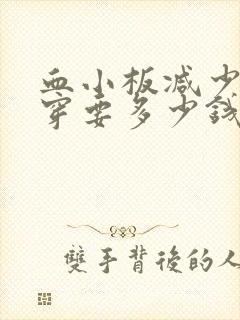 血小板减少
穿要多少钱
雙手背後的人